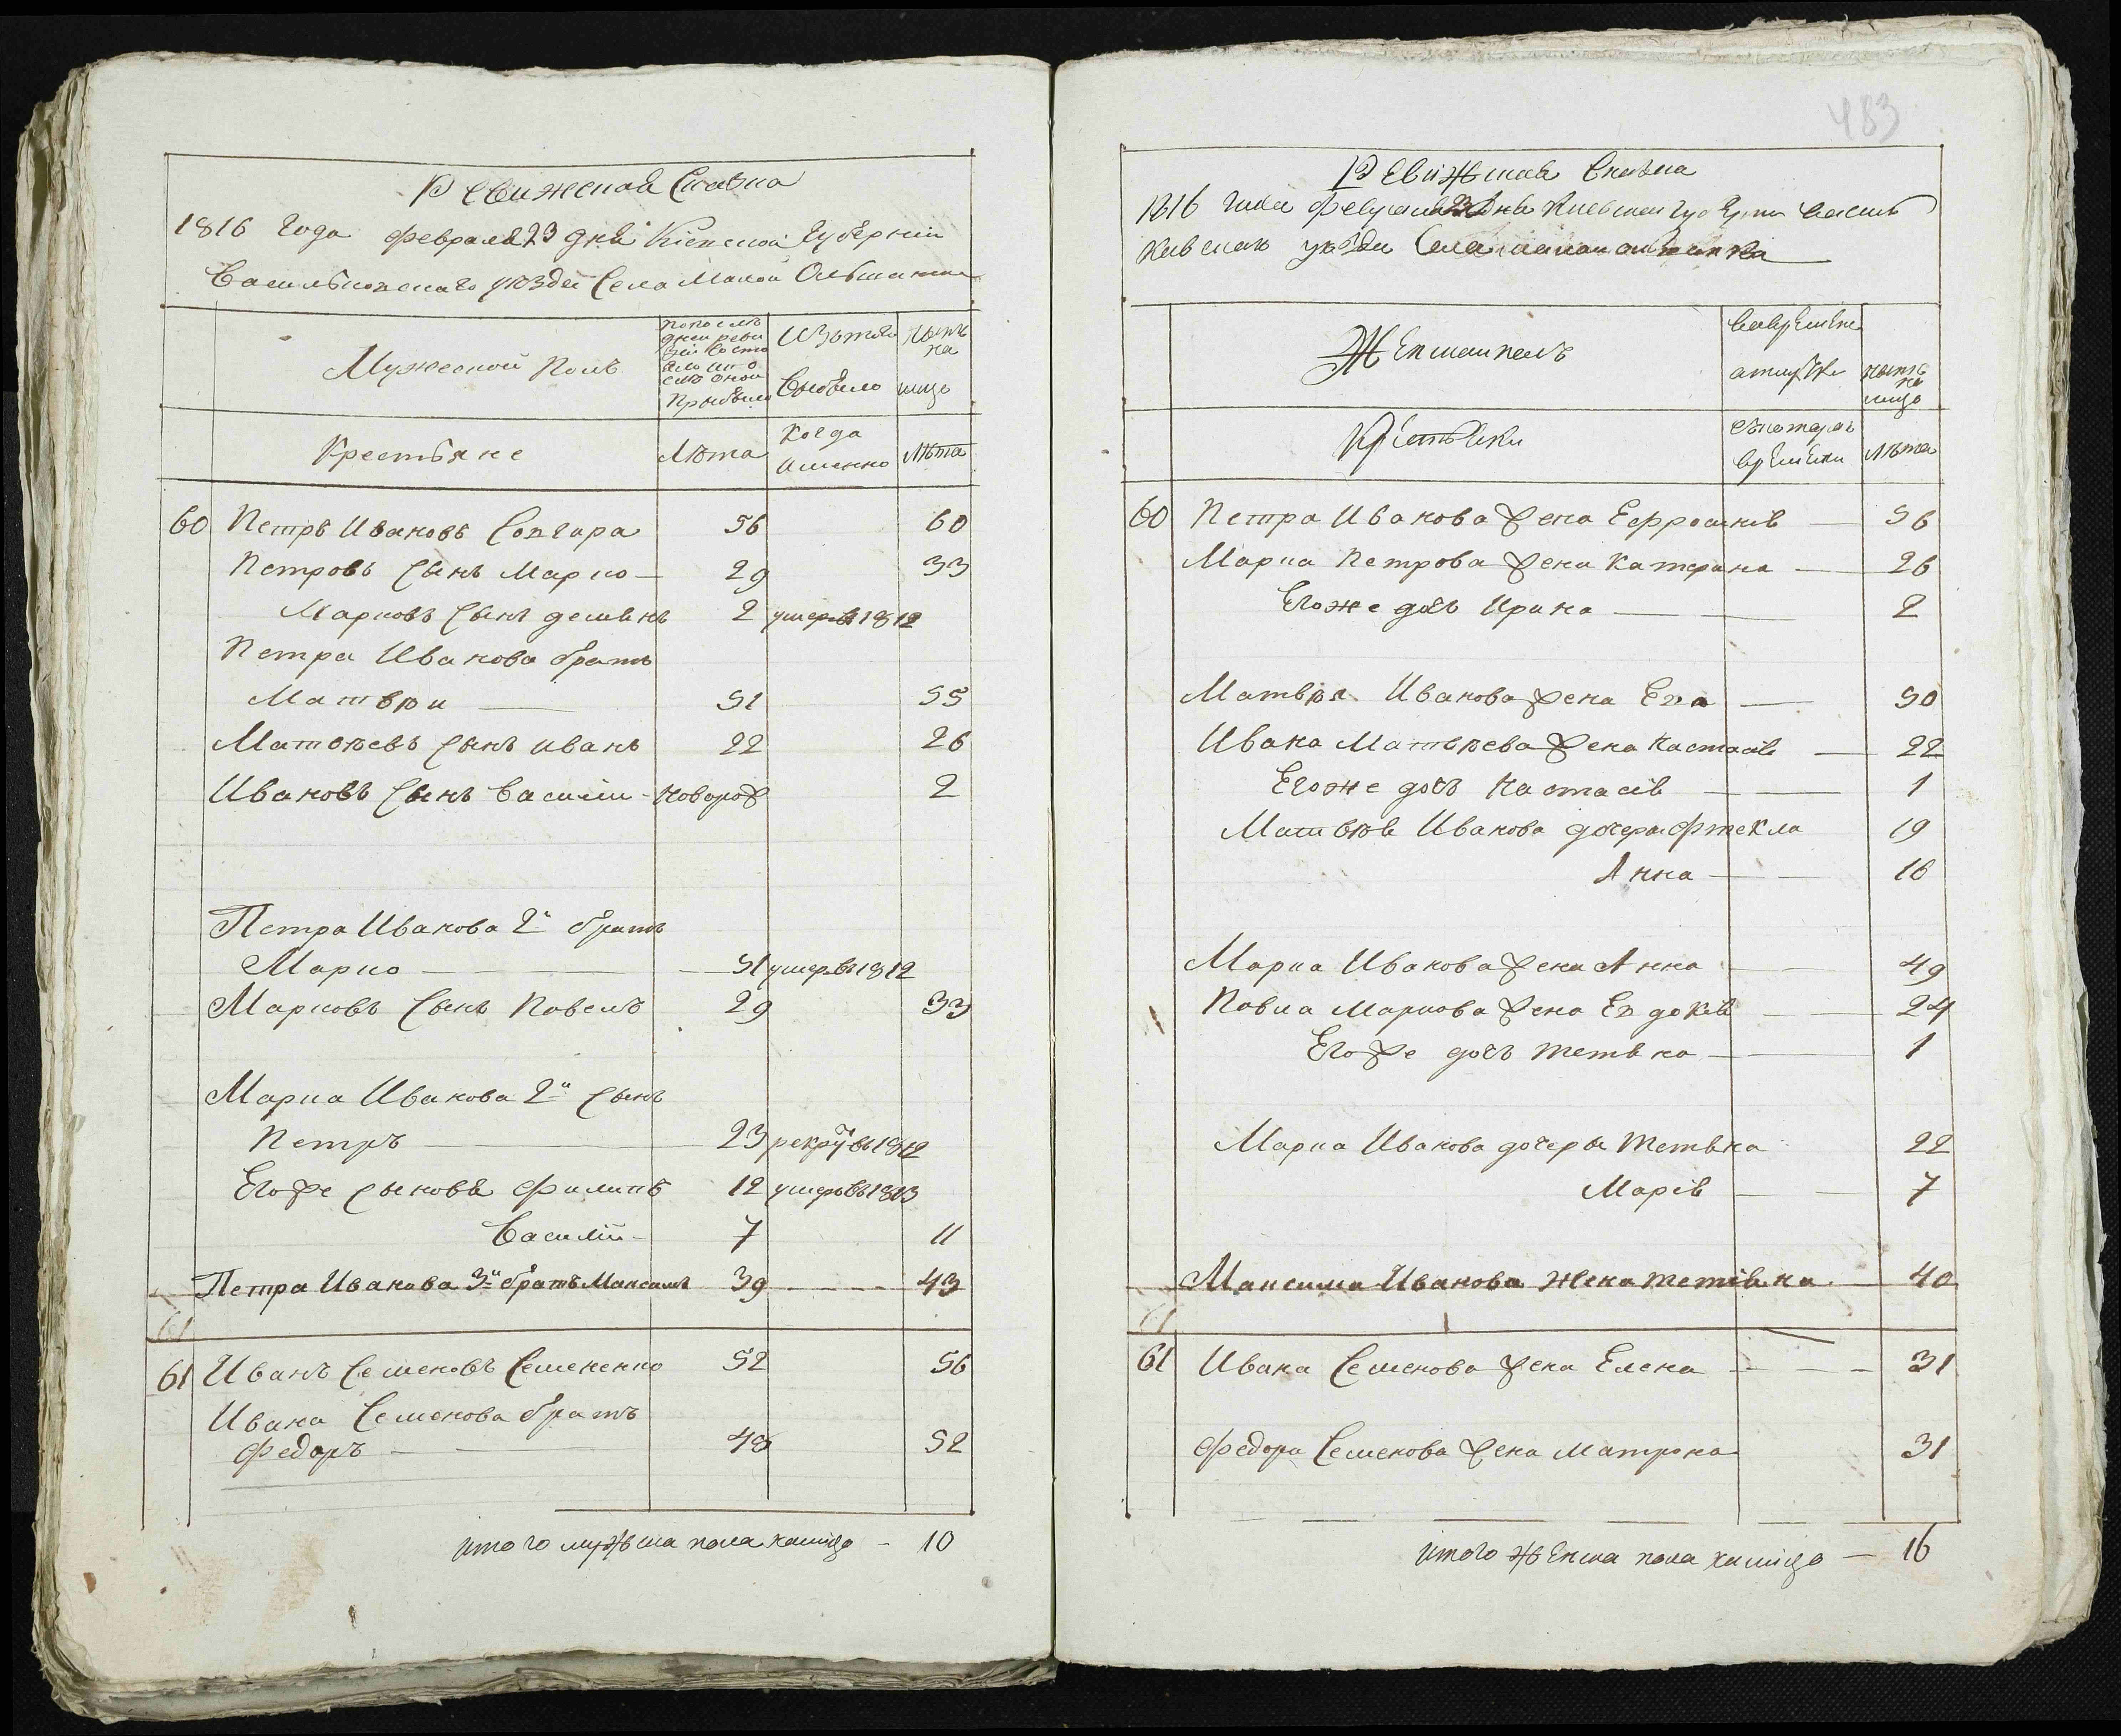 Ревижская Сказка
1816 Года февраля 23 дня Кіевской Губерніи
Васильковскаго уѣзда Села Малой Ольшанки
Мужеской Полъ
Изъ того
Выбыло
ныть
на
лицо
Крестьяне
Лѣта
Когда
именно
Лѣта
60 Петръ Ивановъ 56 60
Петровъ сынъ Марко — 29 33
Марковъ сынъ 2 умеръ въ 1812
Петра Иванова братъ
Матвѣи — 51 55
Матвѣевъ сынъ иванъ 22 26
Ивановъ сынъ Василіи - новорож 2
Петра Иванова 2й братъ
Марко — 51 умеръ въ 1812
Марковъ сынъ Павелъ 29 33
Марка Иванова 2й сынъ
Петръ — 23 рекру въ 1812
Егоже сыновя Филипъ 12 умеръ въ 1813
Василіи - 7 11
Петра Иванова 3й братъ Максимъ 39 - - - - 43
61
61 Иванъ Семеновъ Семененко 52 56
Ивана Семенова братъ
Федоръ — 48 52
итого мужска пола налицо - 10
483
Ревижская Сказка
1816 года февраля 23 дня Киевской губерни Василь
ковскаго уѣзда Села малой олшанки
Женской полъ
Вовремене
отлучки
ныть
на
лицо
Крестянки
съкоторѣ
времени
Лѣта
60 Петра Иванова жена Ефросинія — 56
Марка Петрова жена Катерина — 26
Егоже дочь Ирина — 2
Матвѣя Иванова жена Ева — 50
Ивана Матвѣева жена Настасія — 22
Егоже дочь Настасія — 1
Матвѣя Иванова дочери фтекла 19
Анна — 16
Марка Иванова жена Анна — 49
Павла Маркова жена Евдокія — 24
Егоже дочь тетяна — 1
Марка Иванова дочеры тетяна 22
Марія — 7
Максима Иванова жена тетіяна — 40
61
61 Ивана Семенова жена Елена - - - 31
Федора Семенова жена Матрона 31
итого женска пола налицо — 16